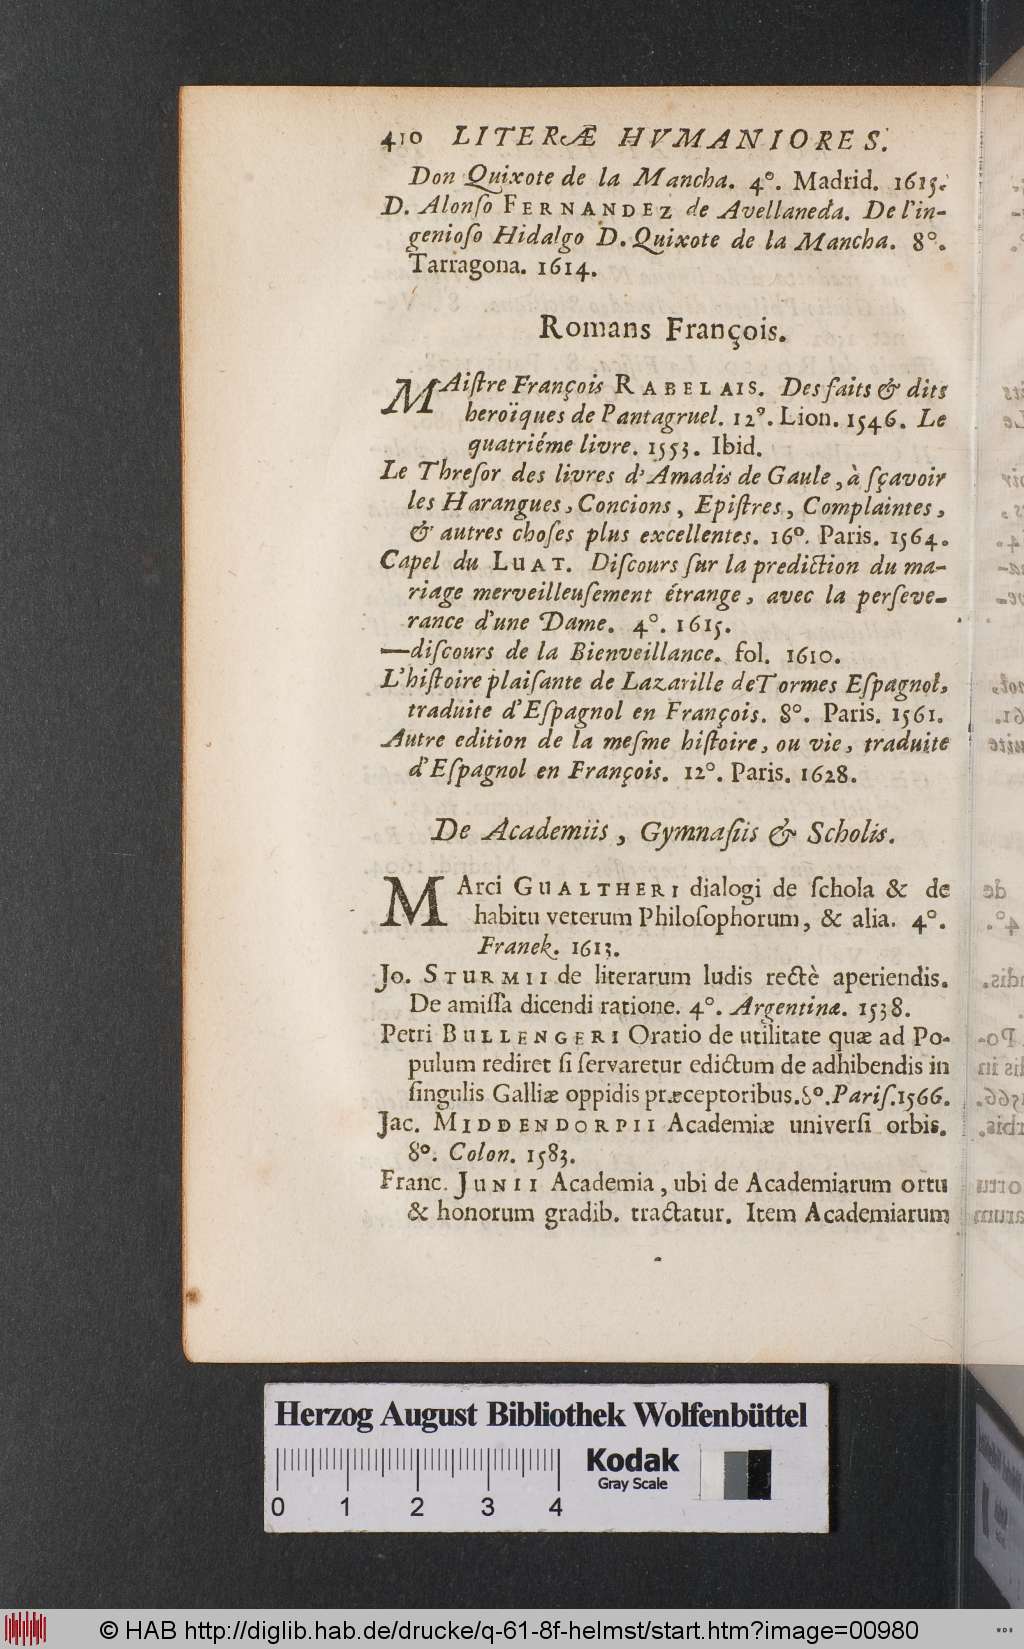 410 LITERÆ HVMANIORES.
Don Quixote de la Mancha. 4°. Madrid. 1615.
D. Alonſo FERNANDEZ de Avellaneda. De l'in-
genioſo Hidalgo D. Quixote de la Mancha. 8°.
Tarragona. 1614.
Romans François.
MAiſtre François RABELAIS. Des faits & dits
heroïques de Pantagruel. 12°. Lion. 1546. Le
quatriéme livre. 1553. Ibid.
Le Threſor des livres d'Amadis de Gaule, à ſçavoir
les Harangues, Concions, Epiſtres, Complaintes,
& autres choſes plus excellentes. 16°. Paris. 1564.
Capel du LUAT. Diſcours ſur la prediction du ma-
riage merveilleuſement étrange, avec la perſeve-
rance d'une Dame. 4°. 1615.
—diſcours de la Bienveillance. fol. 1610.
L'hiſtoire plaiſante de Lazarille de Tormes Eſpagnol,
traduite d'Eſpagnol en François. 8°. Paris. 1561.
Autre edition de la meſme hiſtoire, ou vie, traduite
d'Eſpagnol en François. 12°. Paris. 1628.
De Academiis, Gymnaſiis & Scholis.
MArci GUALTHERI dialogi de ſchola & de
habitu veterum Philoſophorum, & alia. 4°.
Franek. 1613.
Jo. STURMII de literarum ludis rectè aperiendis.
De amiſſa dicendi ratione. 4°. Argentinæ. 1538.
Petri BULLENGERI Oratio de utilitate quæ ad Po-
pulum rediret ſi ſervaretur edictum de adhibendis in
ſingulis Galliæ oppidis præceptoribus. 8°. Pariſ. 1566.
Jac. MIDDENDORPII Academiæ univerſi orbis.
8°. Colon. 1583.
Franc. JUNII Academia, ubi de Academiarum ortu
& honorum gradib. tractatur. Item Academiarum
Herzog August Bibliothek Wolfenbüttel
Kodak
Gray Scale
0 1 2 3 4
© HAB http://diglib.hab.de/drucke/q-61-8f-helmst/start.htm?image=00980